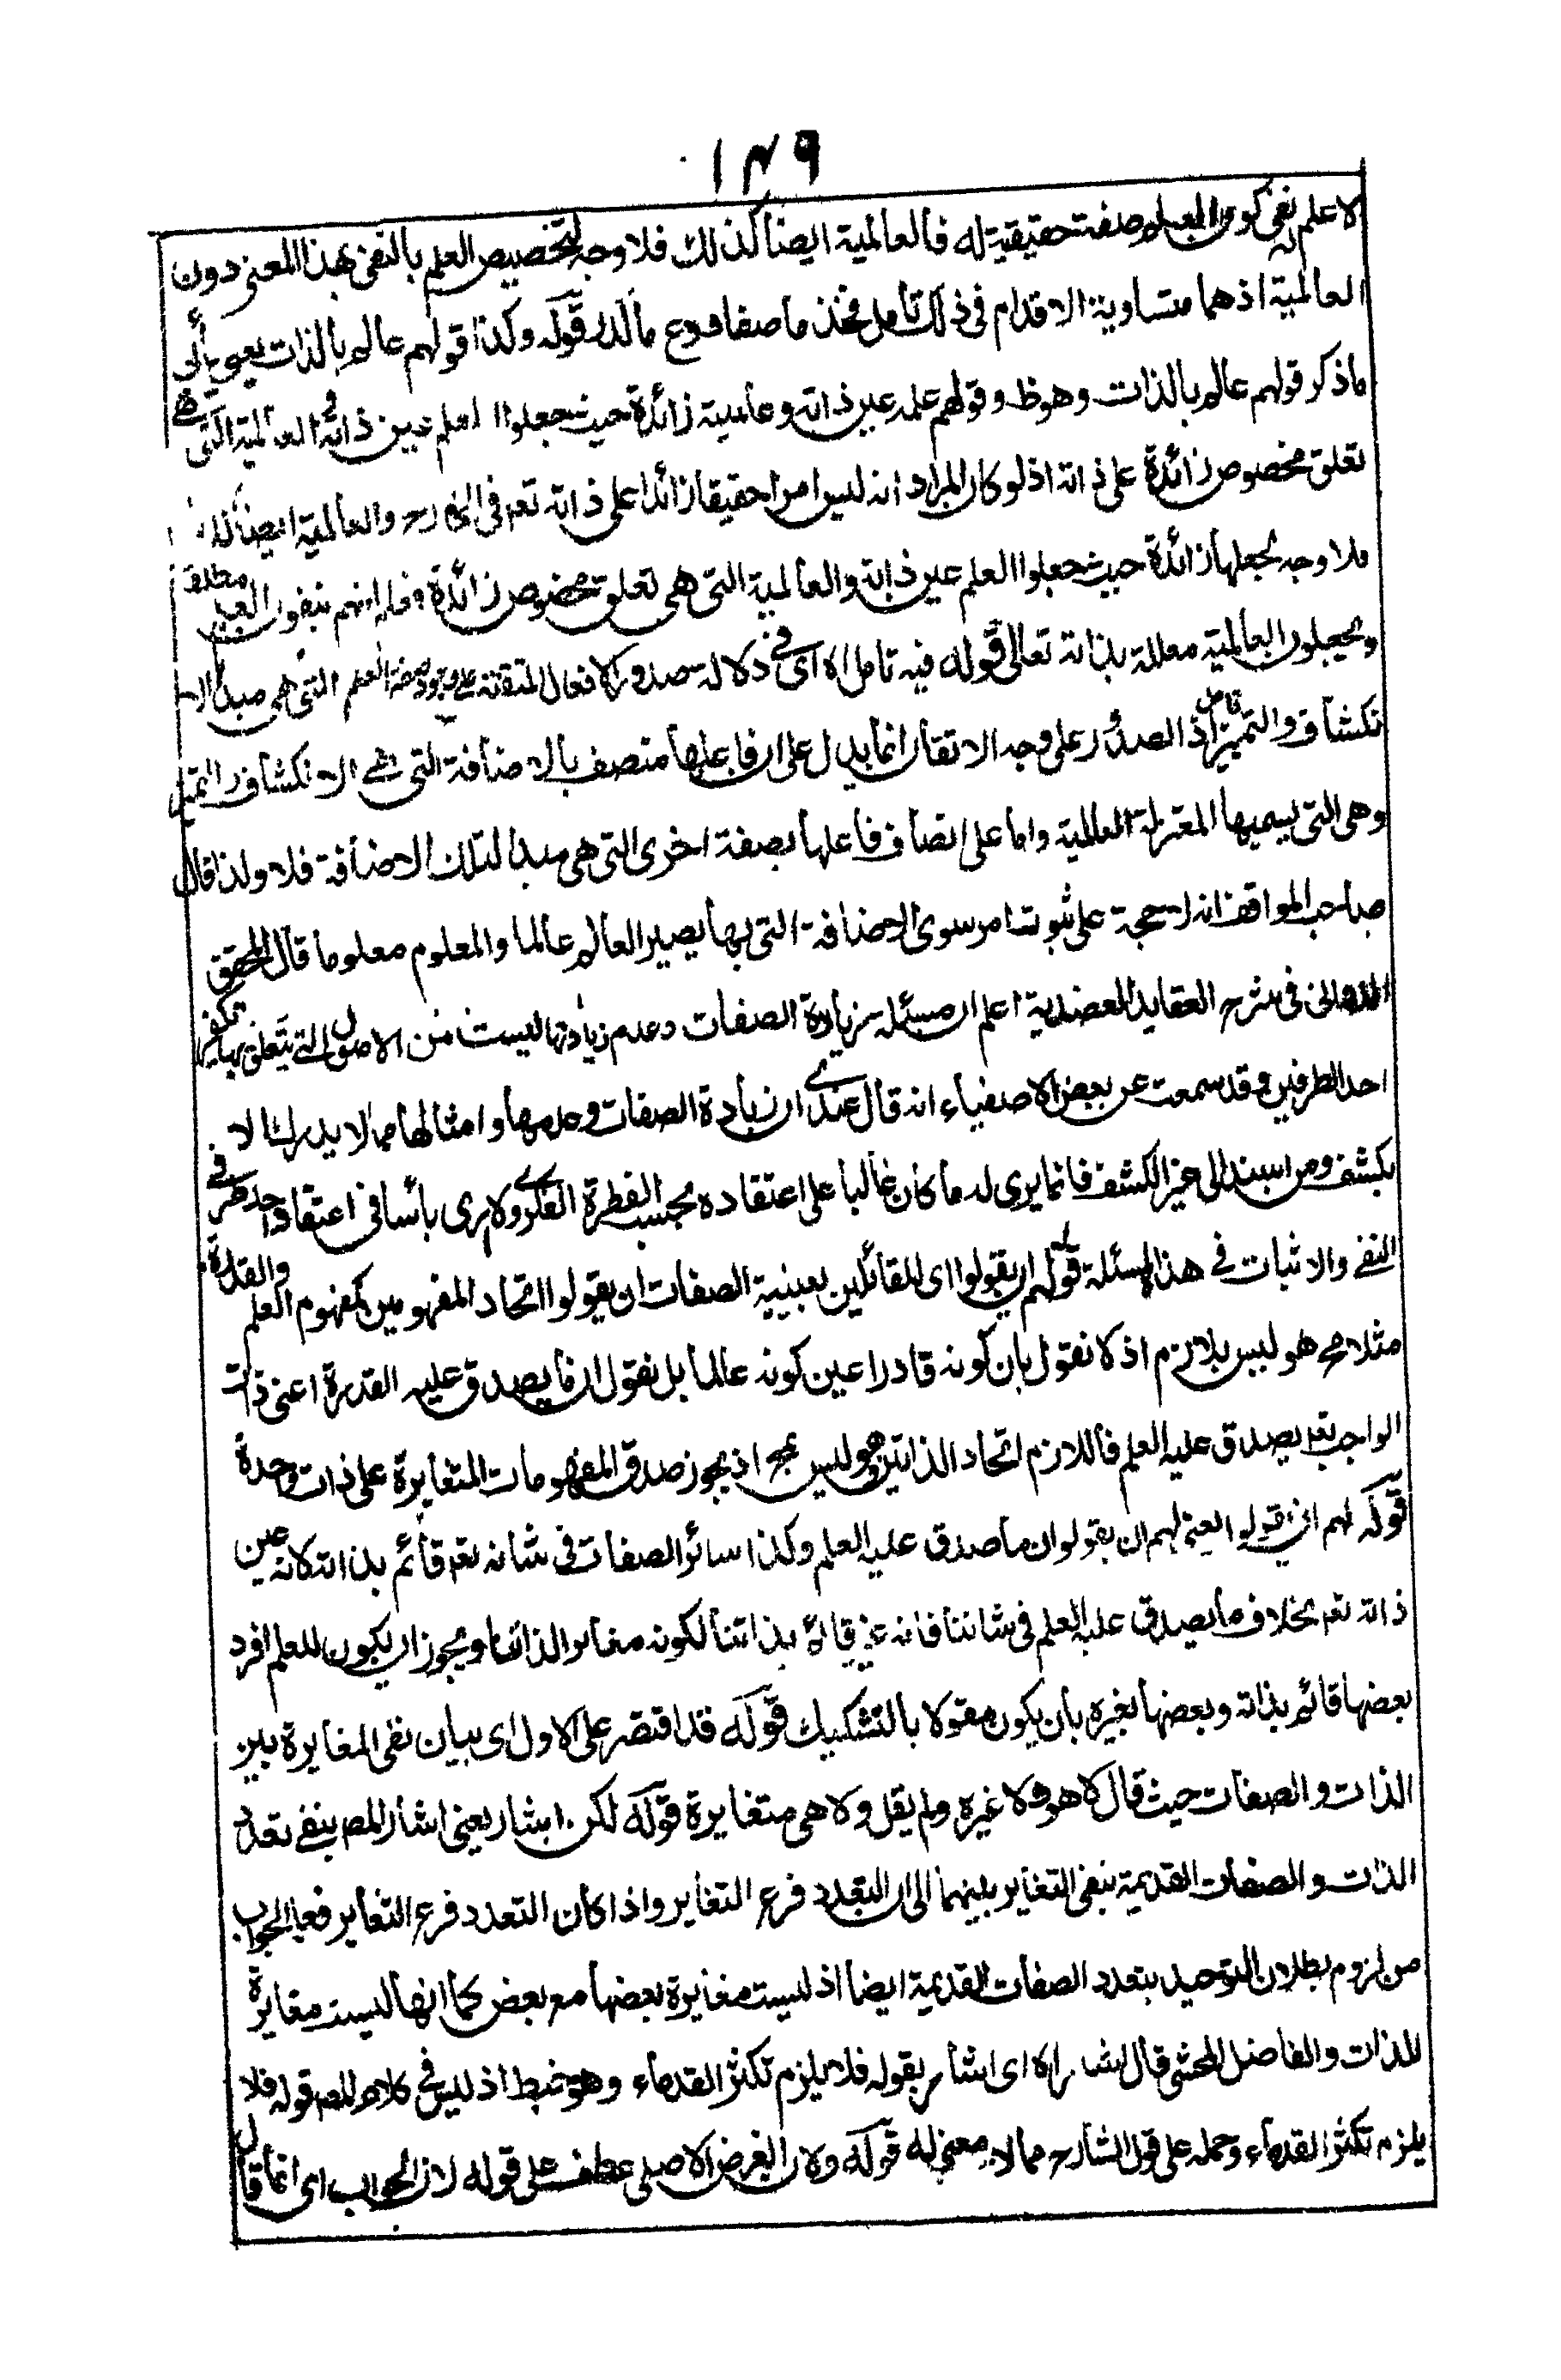 ١٤٩
لا علم له نفى كون العلم صفت حقيقية له فالعالمية ايضا كذلك فلا وجه لتخصيص العلم بالنفى بهذا المعنى دون
العالمية اذ هما متساوية الاقدام فى ذلك تأمل فخذ ما صفا ودع ما كدر قوله وكذا قولهم عالم بالذات يعنى يأبى
ما ذكر قولهم عالم بالذات وهو ظ وقولهم علمه عين ذاته وعالمية زائدة حيث جعلوا العلم عين ذاته والعالمية التى هى
تعلق مخصوص زائدة على ذاته اذ لو كان المراد انه ليس امرا حقيقا زائدا على ذاته تعم فى الخارج والعالمية ايضا كذلك
فلا وجه لجعلها زائدة حيث جعلوا العلم عين ذاته والعالمية التى هى تعلق مخصوص زائدة فعلم انهم ينفون العلم مطلقا
ويجعلون العالمية معللة بذاته تعالى قوله فيه تامل اه اى فى دلالة صدور الافعال المتقنة على وجود صفة العلم التى هى مبدأ الا
نكشاف والتميز تامل اذ الصدور على وجه الاتقان انما يدل على ان فاعلها متصف بالاضافة التى هى الانكشاف والتميز
وهى التى يسميها المعتزلة العالمية واما على اتصاف فاعلها بصفة اخرى التى هى مبدأ لتلك الاضافة فلا ولذا قال
صاحب المواقف انه لا حجة على ثبوت امر سوى الاضافة التى بها يصير العالم عالما والمعلوم معلوما قال المحقق
الدوانى فى شرح العقايد العضدية اعلم ان مسئلة زيادة الصفات وعدم زيادتها ليست من الاصول التى يتعلق بها تكفير
احد الطرفين وقد سمعت عن بعض الاصفياء انه قال عندى ان زيادة الصفات وعدمها وامثالها مما لا يدرك الا
بكشف ومن اسند الى غير الكشف فانما يرى له ما كان غالبا على اعتقاده بحسب النظرة الفكرى ولا ارى بأسا فى اعتقاد احد طرفى
النفى والاثبات فى هذه المسئلة قوله لهم ان يقولوا اى للقائلين بعينية الصفات ان يقولوا اتحاد المفهومين كمفهوم العلم والقدرة
مثلا مح هو ليس بلازم اذ لا نقول بان كونه قادرا عين كونه عالما بل نقول ان ما يصدق عليه القدرة اعنى ذات
الواجب تعم يصدق عليه العلم فاللازم اتحاد الذاتين وهو ليس بمح اذ يجوز صدق المفهومات المتغايرة على ذات واحدة
قوله لهم ان يقولوا يعنى لهم ان يقولوا ان ما صدق عليه العلم وكذا سائر الصفات فى شانه تعم قائم بذاته لانه عين
ذاته تعم بخلاف ما يصدق عليه العلم فى شاننا فانه غير قائم بذاتنا لكونه مغاير الذاتنا ويجوز ان يكون للعلم افرد
بعضها قائم بذاته وبعضها بغيره بان يكون مقولا بالتشكيك قوله قد اقتصر على الاول اى بيان نفى المغايرة بين
الذات والصفات حيث قال لا هو ولا غيره ولم يقل ولا هى متغايرة قوله لكن اشار يعنى اشار المص بنفى تعدد
الذات والصفات القديمة بنفى التغاير بينهما الى ان التعدد فرع التغاير واذا كان التعدد فرع التغاير فعلم الجواب
من لزوم بطلان التوحيد بتعدد الصفات القديمة ايضا اذ ليست مغايرة بعضها مع بعض كما انها ليست مغايرة
للذات والفاضل المحشى قال اشار اه اى اشار بقوله فلا يلزم تكثر القدماء وهو خبط اذ ليس فى كلام المص قوله فلا
يلزم تكثر القدماء وحمله على قول الشارح مما لا معنى له قوله ولان الغرض الاصلى عطف على قوله لان الجواب اى انما قال